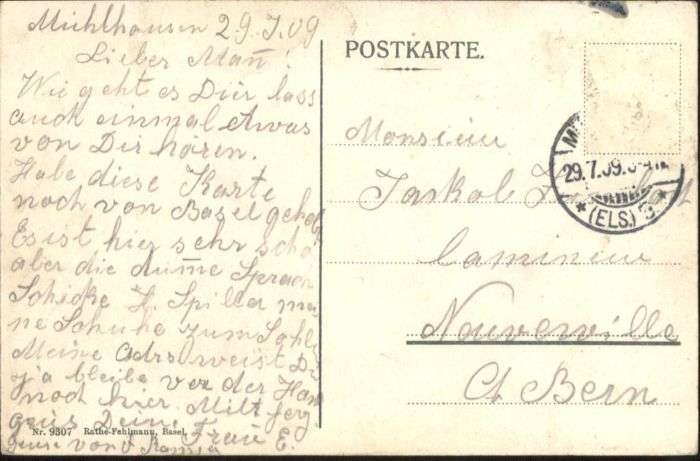 Mühlhausen 29.7.09
Lieber Mañ!
Wie geht es Dier lass
auck einmal etwas
von Dir hören.
Habe diese Karte
noch von Basel gehab
Es ist hier sehr schö
aber die dum̄e Sprach
Schicke H. Spiller mei
ne Schuhe zum Sohle
Meine Adrs weist Du
ja bleibe
noch hier. Mit
grüs Deine Fraue E.
von
Nr. 9307 Rathe-Fehlmann, Basel.
POSTKARTE.
29.7.09.
(ELS.)
Monsieur
Jaskob
Camineur
Neuverville
Ct Bern